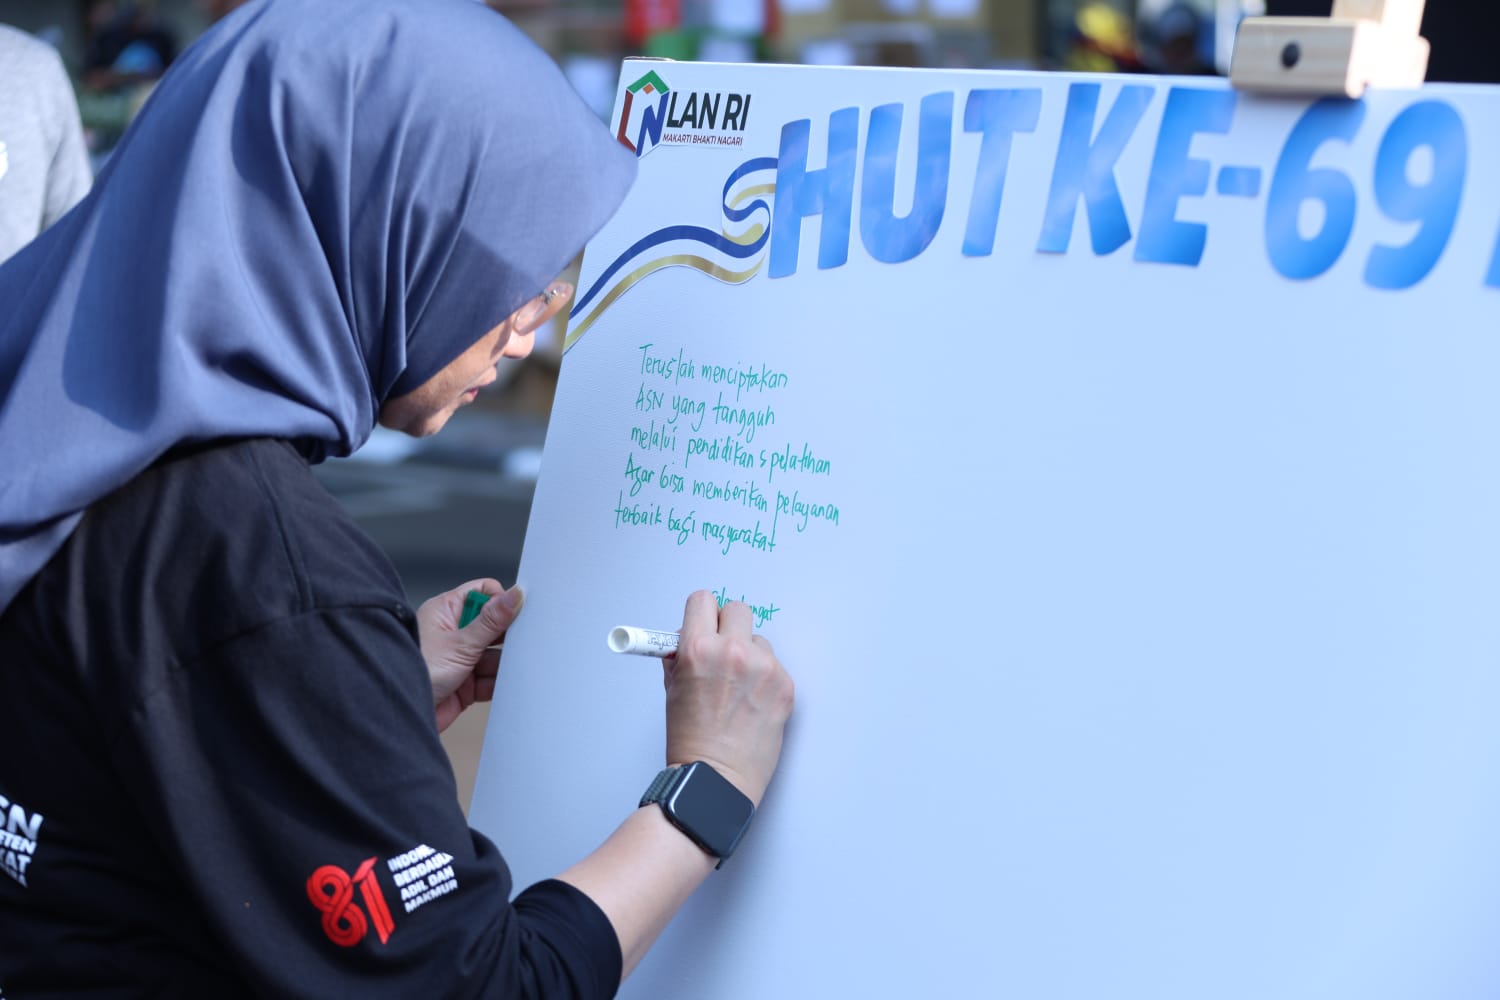 LAN RI
MAKARTI BHAKTI NAGARI
HUT KE-69
Teruslah menciptakan
ASN yang tangguh
melalui pendidikan & pelatihan
Agar bisa memberikan pelayanan
terbaik bagi masyarakat
81
BERDAULAT
ADIL DAN
MAKMUR